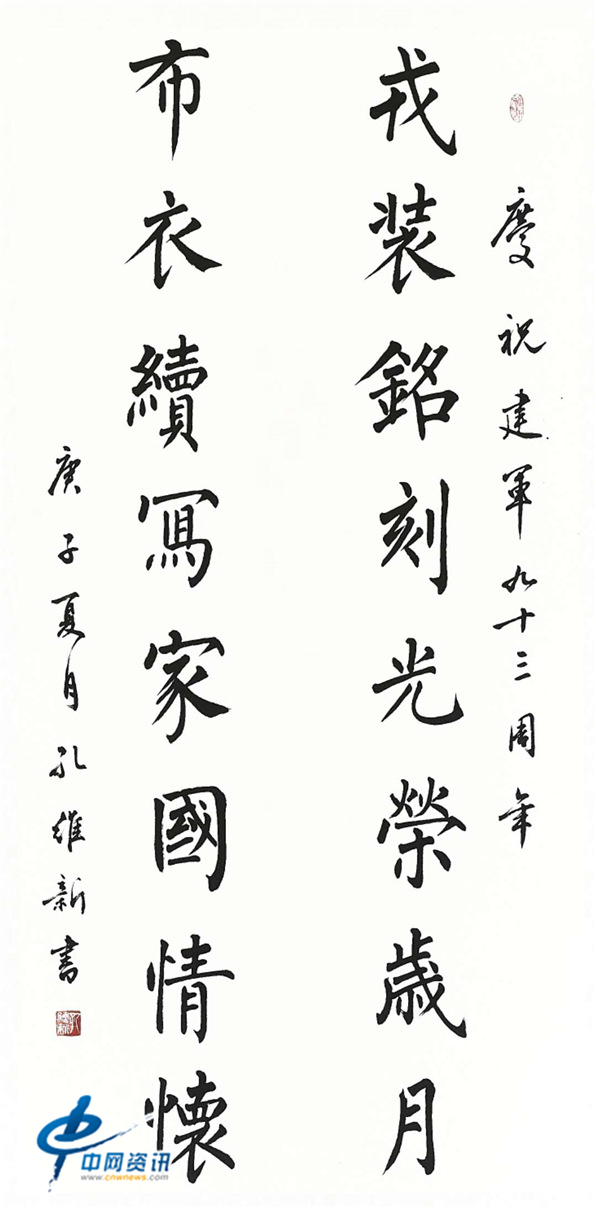 慶祝建軍九十三周年
戎装銘刻光榮歳月
布衣續冩家國情懷
庚子夏月孔維新書
中网资讯
www.cnwnews.com